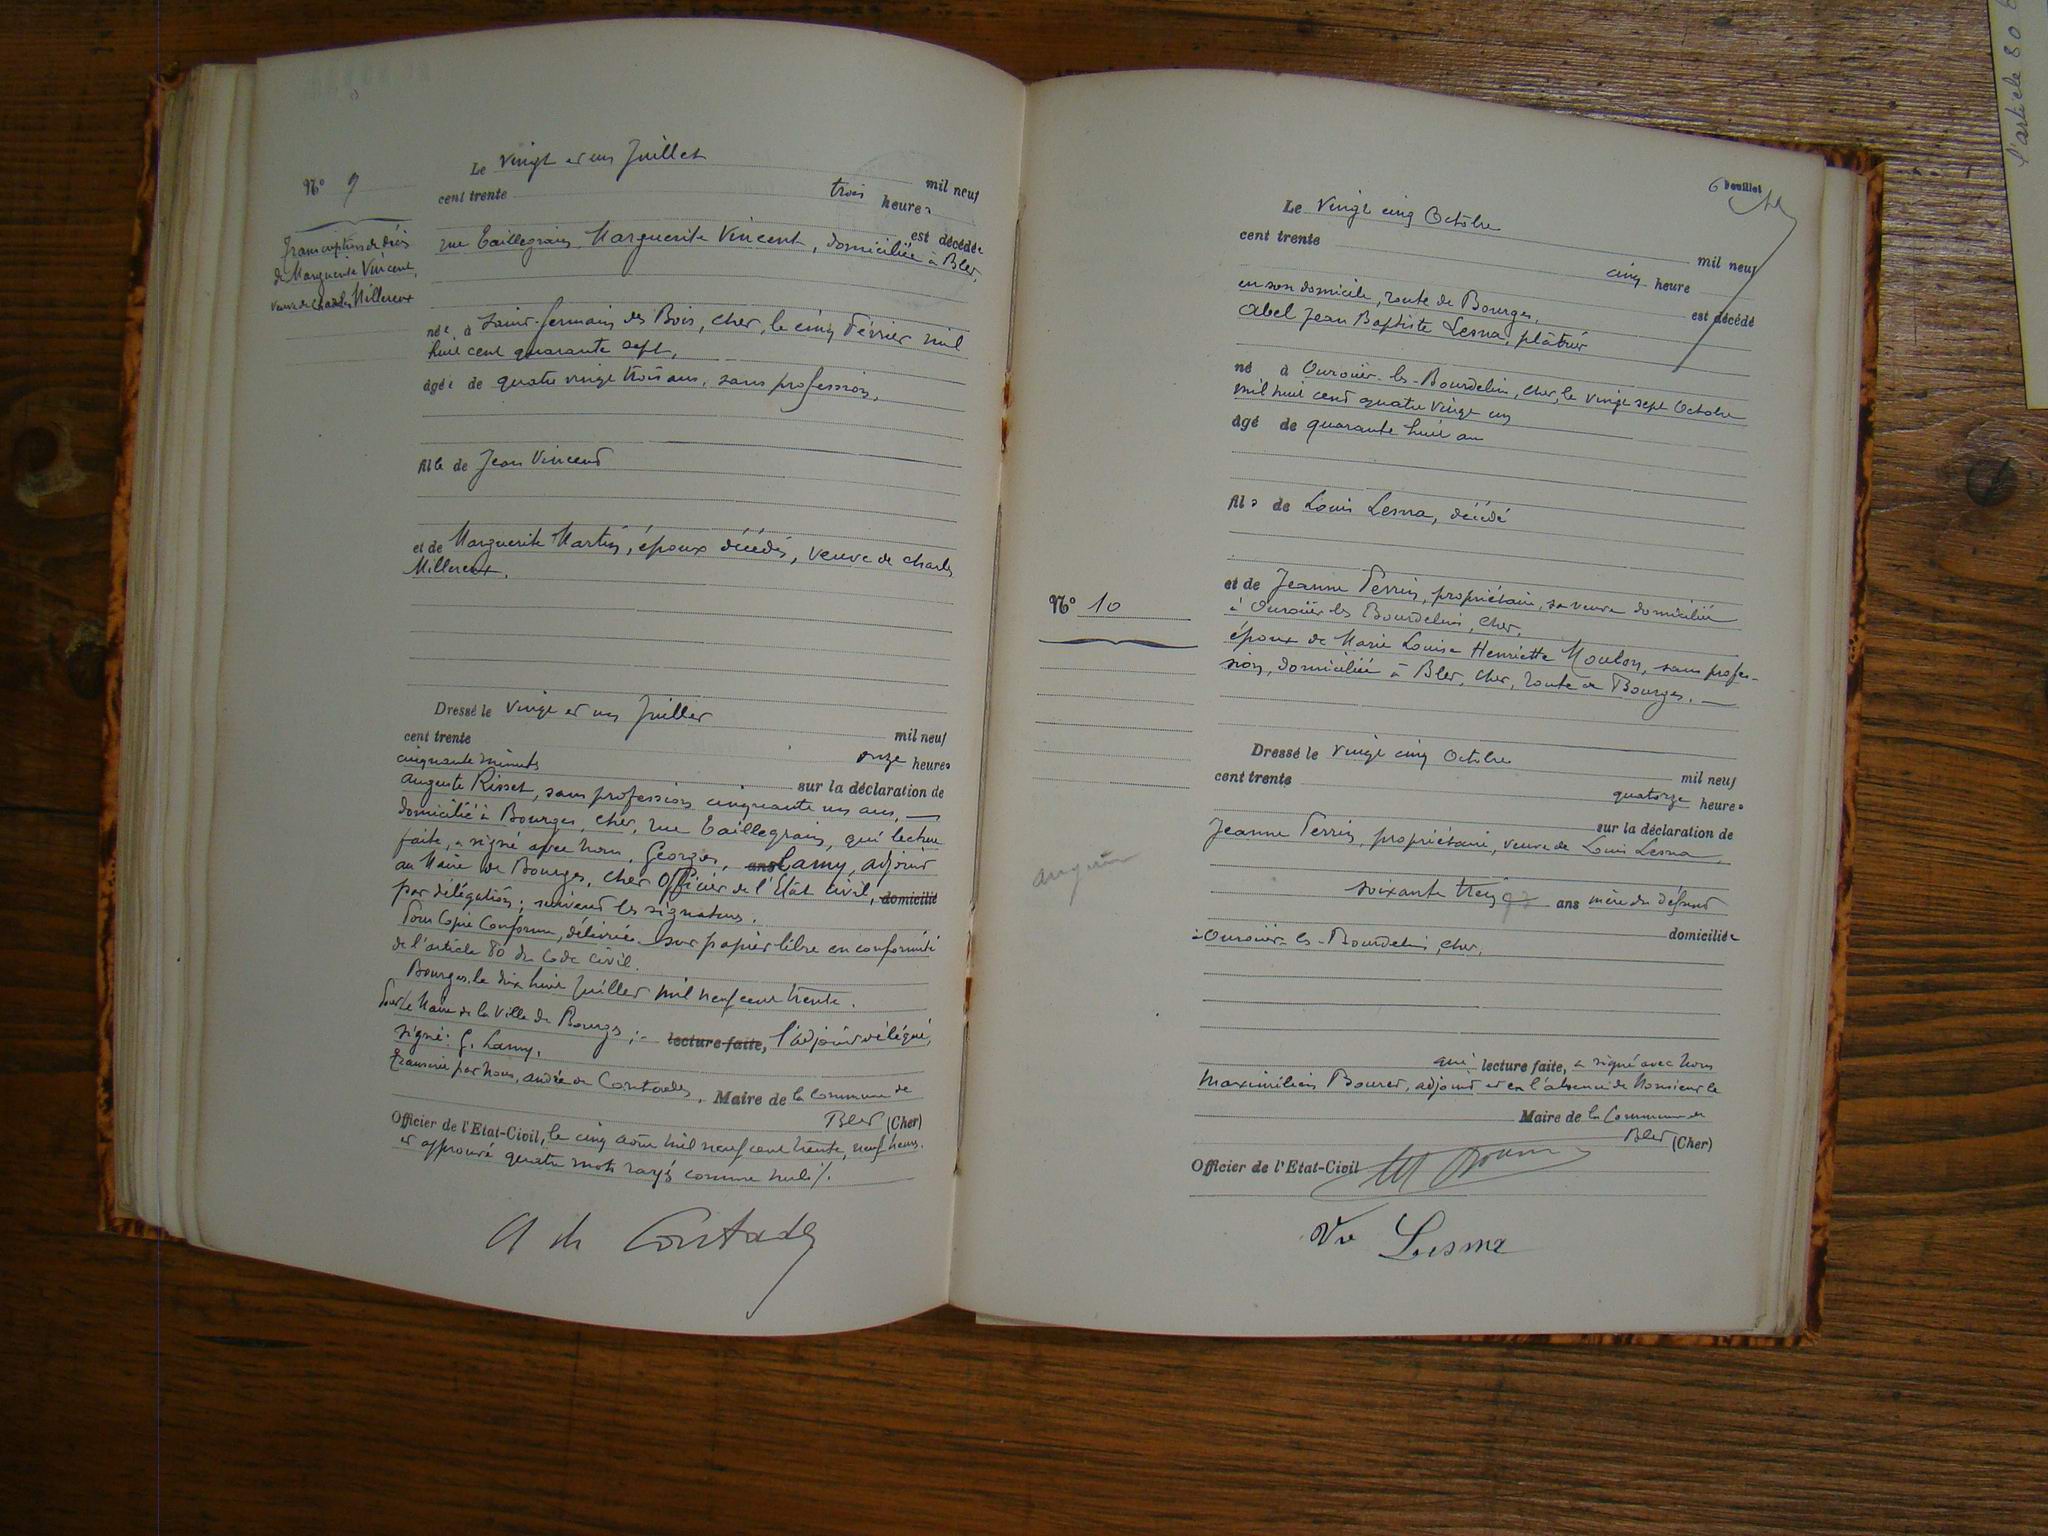 N° 9
Transcription de décès
de Marguerite Vincent,
veuve de Charles Millereux
Le vingt et un Juillet mil neuf
cent trente trois heures
est décédée
rue Taillegrain, Marguerite Vincent, domiciliée à Blet,
née à Saint-Germain des Bois, Cher, le cinq Février mil
huit cent quarante sept,
âgée de quatre vingt trois ans, sans profession,
fille de Jean Vincent
et de Marguerite Martin, époux décédés, veuve de Charles
Millereux.
Dressé le vingt et un Juillet mil neuf
cent trente onze heures
cinquante minutes sur la déclaration de
Auguste Risset, sans profession cinquante un ans,
domicilié à Bourges, Cher, rue Taillegrain, qui lecture
faite, a signé avec nous, Georges, ans Lamy, adjoint
au Maire de Bourges, Cher Officier de l'Etat Civil, domicilié
par délégation ; suivent les signatures.
Pour Copie Conforme, délivrée sur papier libre en conformité
de l'article 80 du Code Civil.
Bourges, le dix huit Juillet mil neuf cent trente.
Pour le Maire de la Ville de Bourges ; lecture faite, l'adjoint délégué,
signé : G. Lamy.
Transcrit par nous, André de Contades, Maire de la Commune de
Blet (Cher)
Officier de l'Etat-Civil, le cinq Août mil neuf cent trente, neuf heures.
et approuvé quatre mots rayés comme nuls.
A de Contades
6 Feuillet
Le vingt cinq Octobre
mil neuf
cent trente
cinq heure
en son domicile, route de Bourges, est décédé
Abel Jean Baptiste Lesna, plâtrier
né à Ourouër-les-Bourdelins, Cher, le vingt sept Octobre
mil huit cent quatre vingt un
âgé de quarante huit an
fils de Louis Lesna, décédé
N° 10
et de Jeanne Perrin, propriétaire, sa veuve domiciliée
à Ourouër les Bourdelins, Cher,
époux de Marie Louise Henriette Moulon, sans profes-
sion, domiciliée à Blet, Cher, route de Bourges.
Dressé le vingt cinq Octobre mil neuf
cent trente quatorze heures
sur la déclaration de
Jeanne Perrin, propriétaire, veuve de Louis Lesna
soixante treize ans mère du défunt
domiciliée
à Ourouër-les-Bourdelins, Cher,
qui lecture faite, a signé avec nous
Maximilien Bourer, adjoint et en l'absence de Monsieur le
Maire de la Commune de
Blet (Cher)
Officier de l'Etat-Civil
Vve Lesna
l'article 80